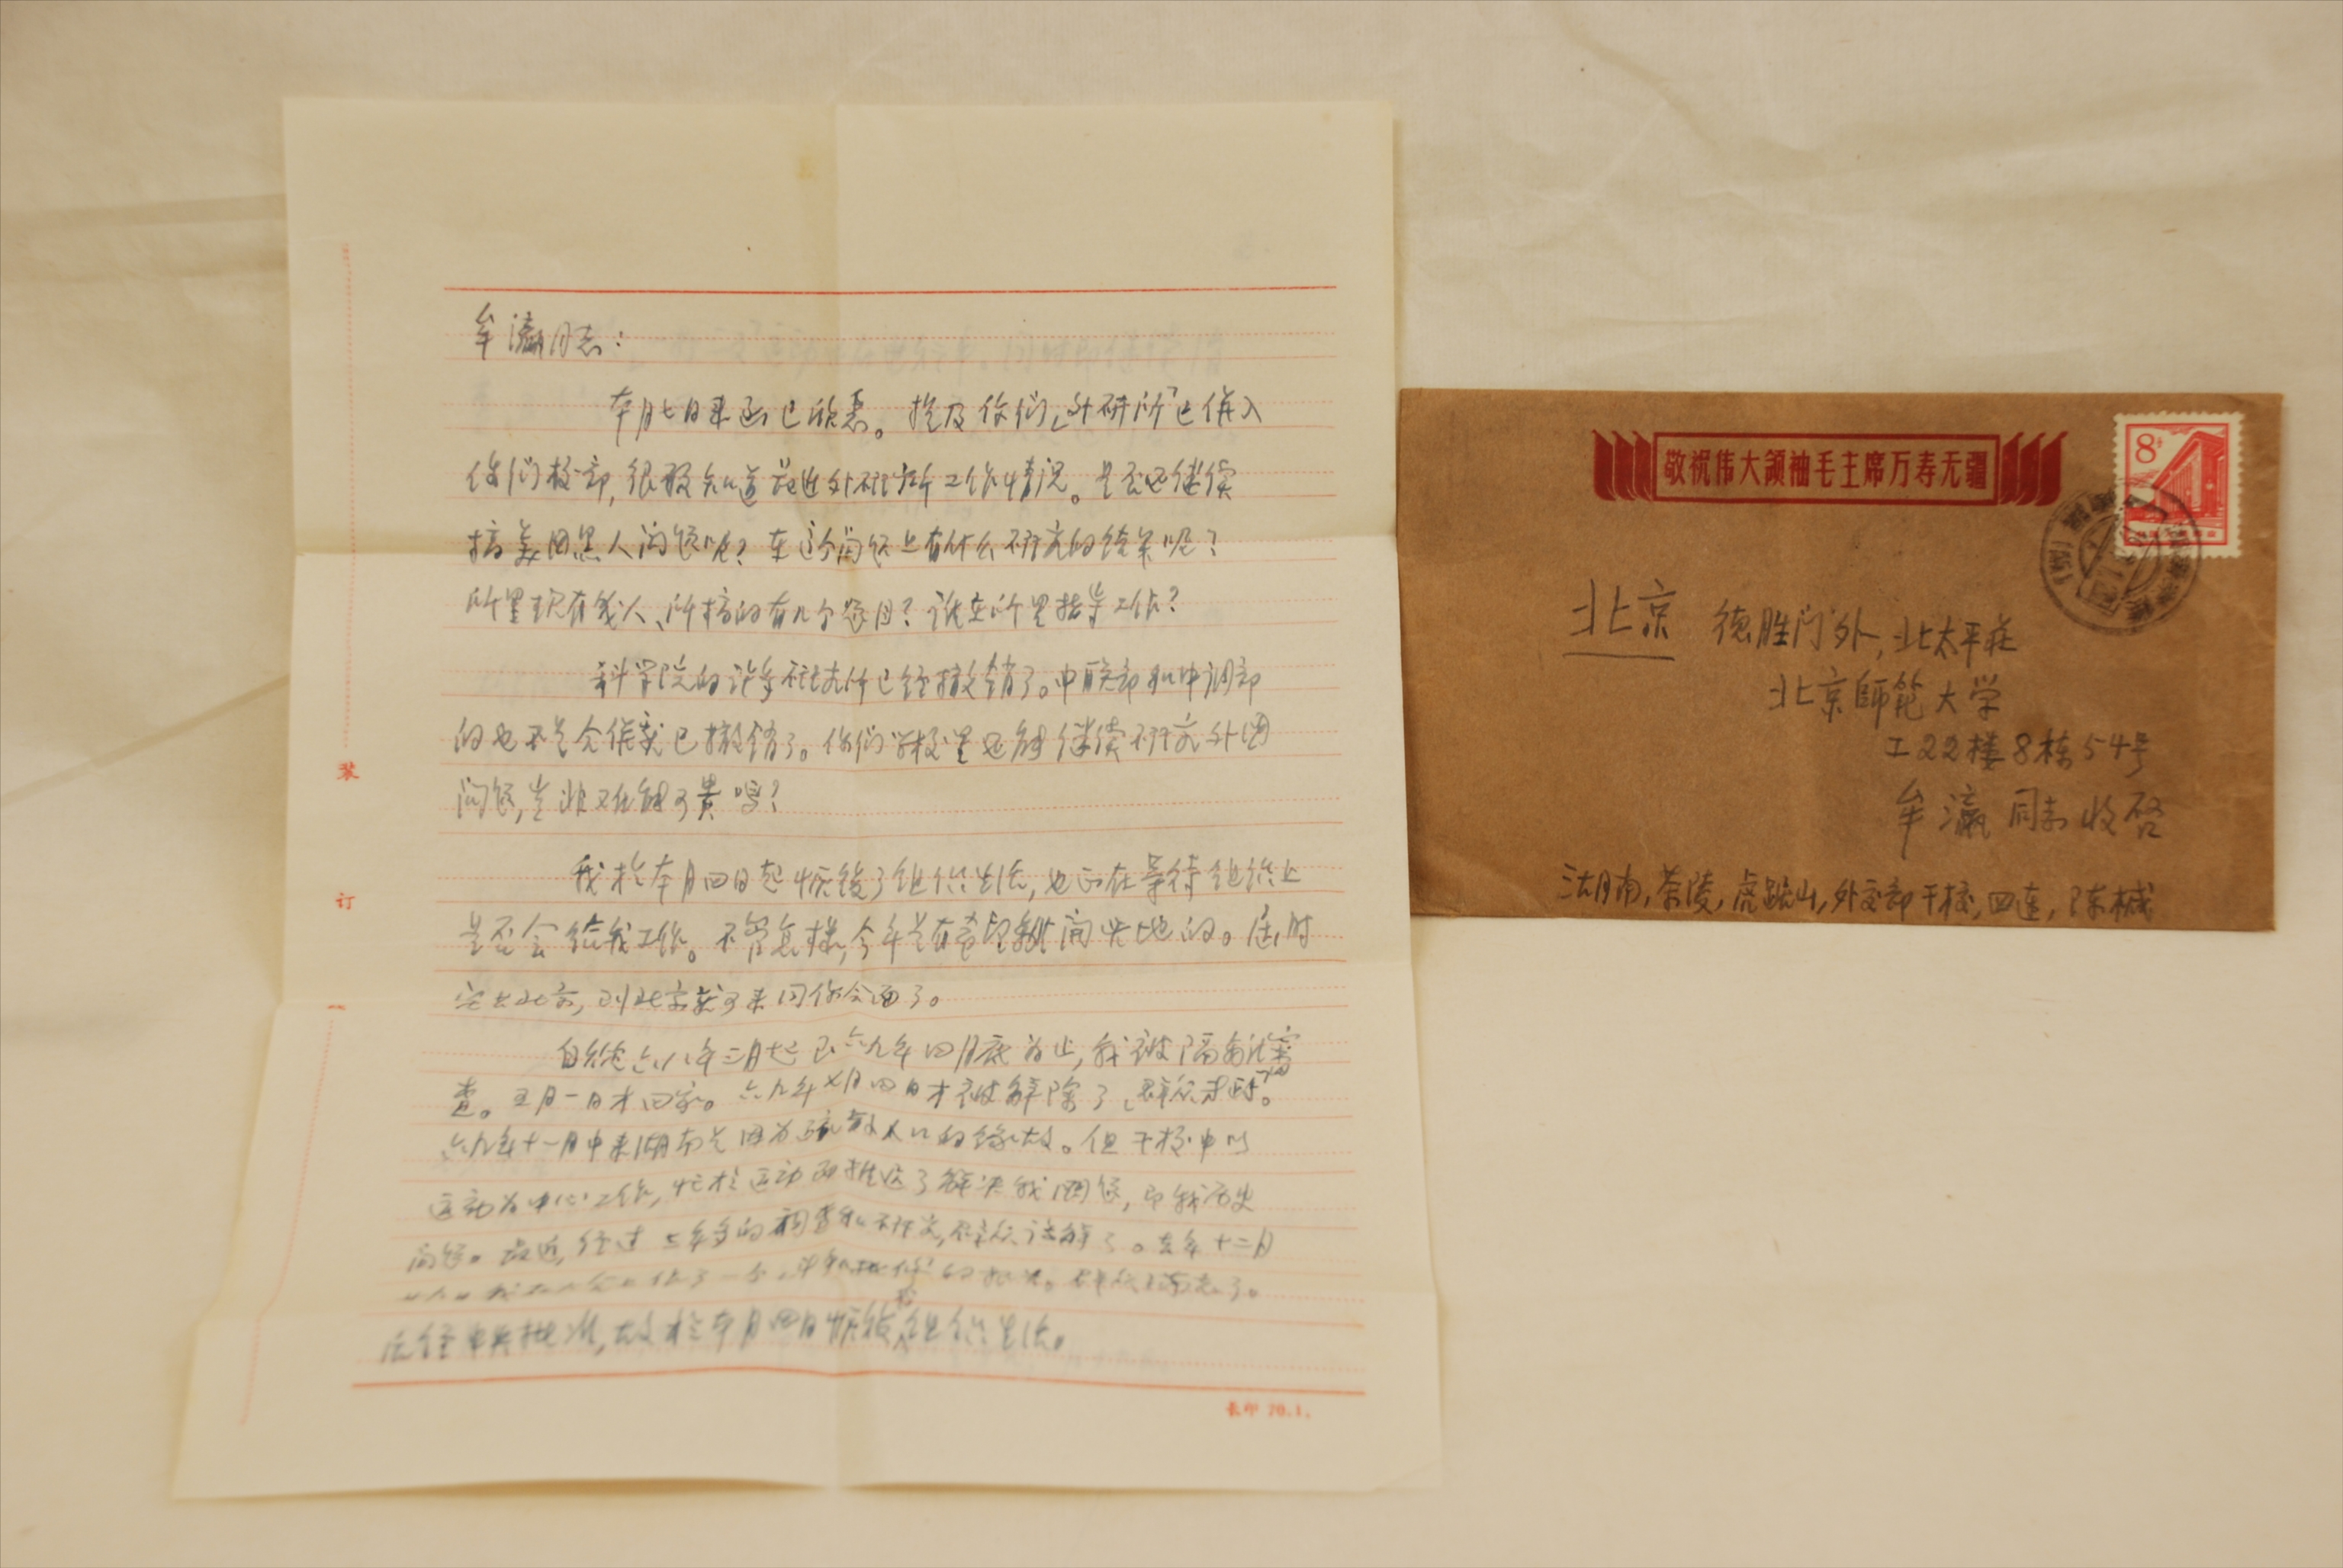 牟瀛同志：
本月七日来函已欣悉。提及你们“外研所”已併入
你们校部，很想知道最近外研所工作情况。是否还继续
搞美国黑人问题呢？在这个问题上有什么研究的结果呢？
所里现有几人、所搞的有几个项目？谁在所里指导工作？
科学院的许多研究所已经撤销了。中联部和中调部
的也不是合併或已撤销了。你们学校里还能继续研究外国
问题，岂非难能可貴吗？
我於本月四日起恢復了组织生活，也正在等待组织上
是否会给我工作。不管怎样，今年是有希望離開此地的。届时
北京，到北京就可来同你会面了。
自從六八年三月起到六九年四月底为止，我被隔离審
查。五月一日才回家。六九年七月四日才被解除了“群众専政”。
六九年十一月中来湖南是因为疏散人口的缘故。但干校中以
运动为中心工作，忙於运动而推迟了解决我问题，即我历史
问题。最近，经过三年多的調查和研究，群众谅解了。去年十二月
后经中共批准，故於本月四日恢復组织生活。
装
订
长印 70.1.
敬祝伟大领袖毛主席万寿无疆
8分
北京 德胜门外，北太平莊
北京師範大学
工22楼8栋54号
牟瀛同志收启
湖南，茶陵，虎踞山，外交部干校，四连，陈棫